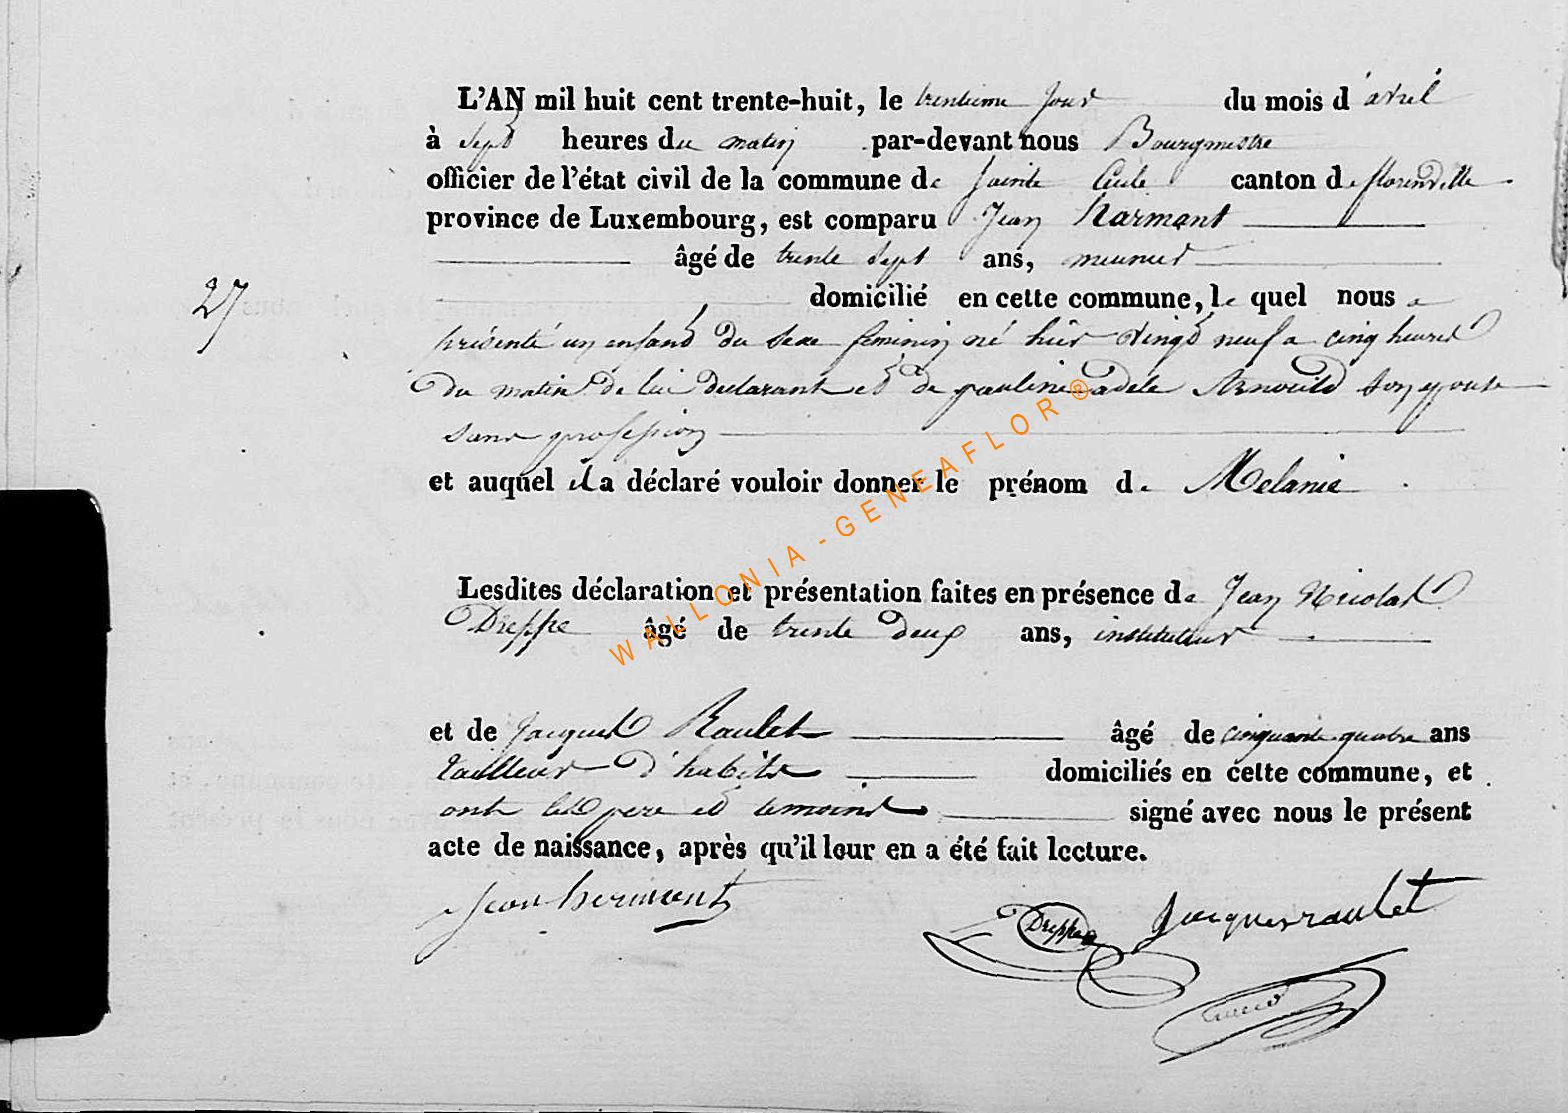 L'AN mil huit cent trente-huit, le trentieme jour du mois d'avril
à sept heures du matin par-devant nous Bourgmestre
officier de l'état civil de la commune de Sainte Cécile canton de florenville
province de Luxembourg, est comparu Jean Harmant
âgé de trente sept ans, meunier
27
domicilié en cette commune, le quel nous a
présenté un enfant du sexe feminin né hier vingt neuf a cinq heures
du matin de lui declarant et de pauline adele Arnould son epouse
sans profession
et auquel il a déclaré vouloir donner le prénom de Melanie
WALLONIA - GENEAFLOR ®
Lesdites déclaration et présentation faites en présence de Jean Nicolas
Dreppe âgé de trente deux ans, instituteur
et de Jacques Raulet âgé de cinquante quatre ans
tailleur d'habits domiciliés en cette commune, et
ont les pere et temoins signé avec nous le présent
acte de naissance, après qu'il leur en a été fait lecture.
Jean hermant Dreppe Jacques raulet